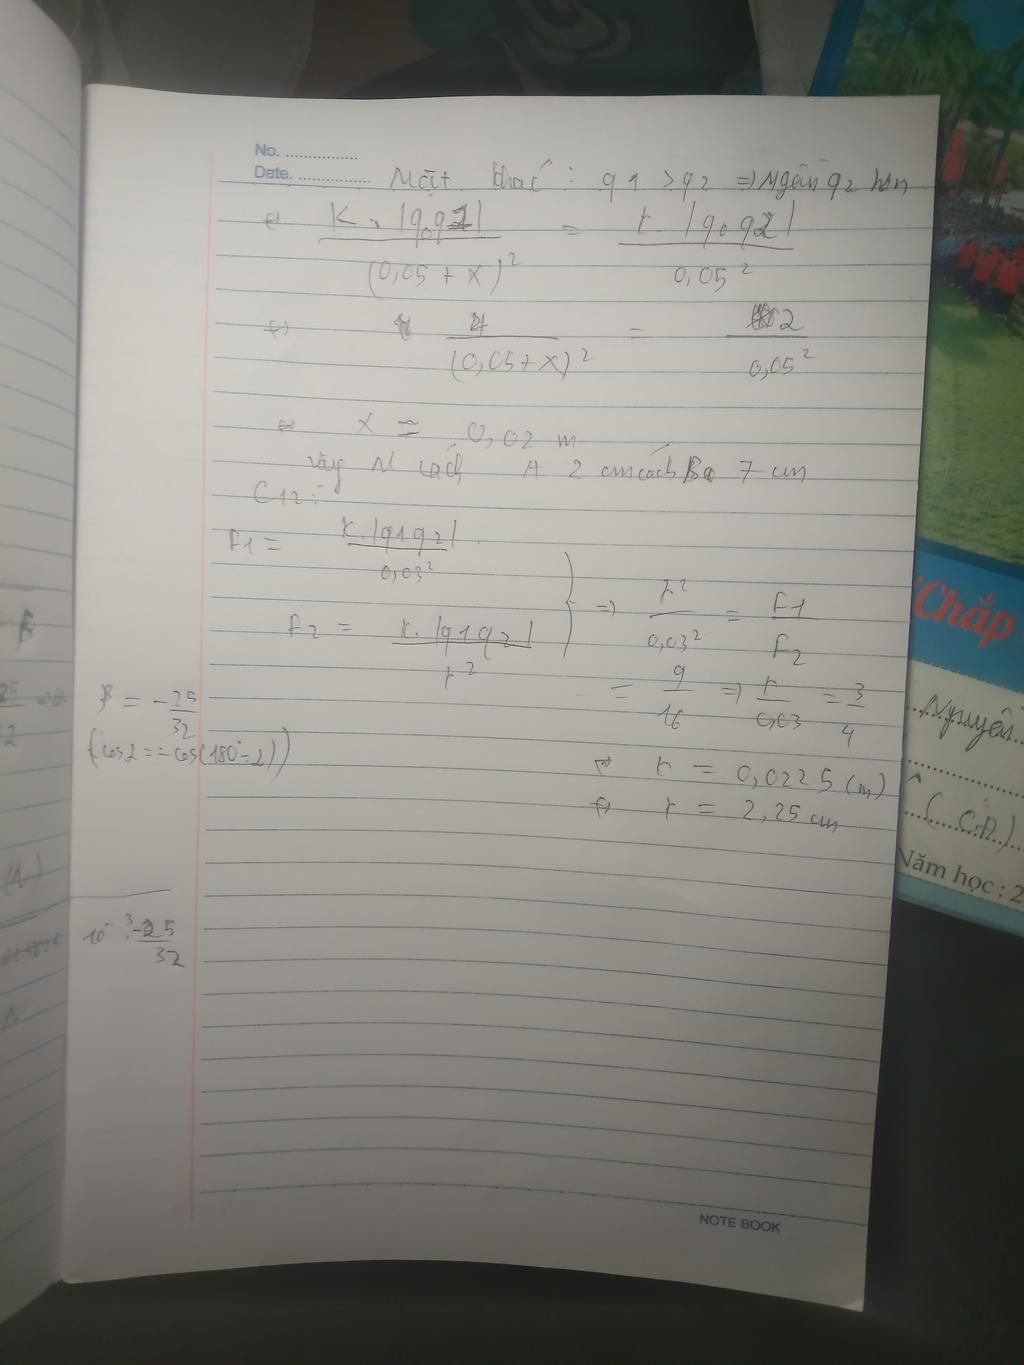 No. ................
Date. ................ Mặt khác : q1 > q2 => Ngần q2 hơn
<=> K. |q0q1| / (0,05 + x)² = k. |q0q2| / 0,05²
<=> 4 / (0,05+x)² = 2 / 0,05²
<=> x = 0,02 m
Vậy N cách A 2 cm cách B 7 cm
C12:
F1 = K.|q1q2| / 0,03²
F2 = K.|q1q2| / r²
=> r² / 0,03² = F1 / F2
= 9 / 16 => r / 0,03 = 3 / 4
<=> r = 0,0225 (m)
<=> r = 2,25 cm
β = -25 / 32
(cos2 = -cos(180°-2))
32
NOTE BOOK
Chắp
Nguyễn
(CA)
Năm học : 2
β
(N)
N